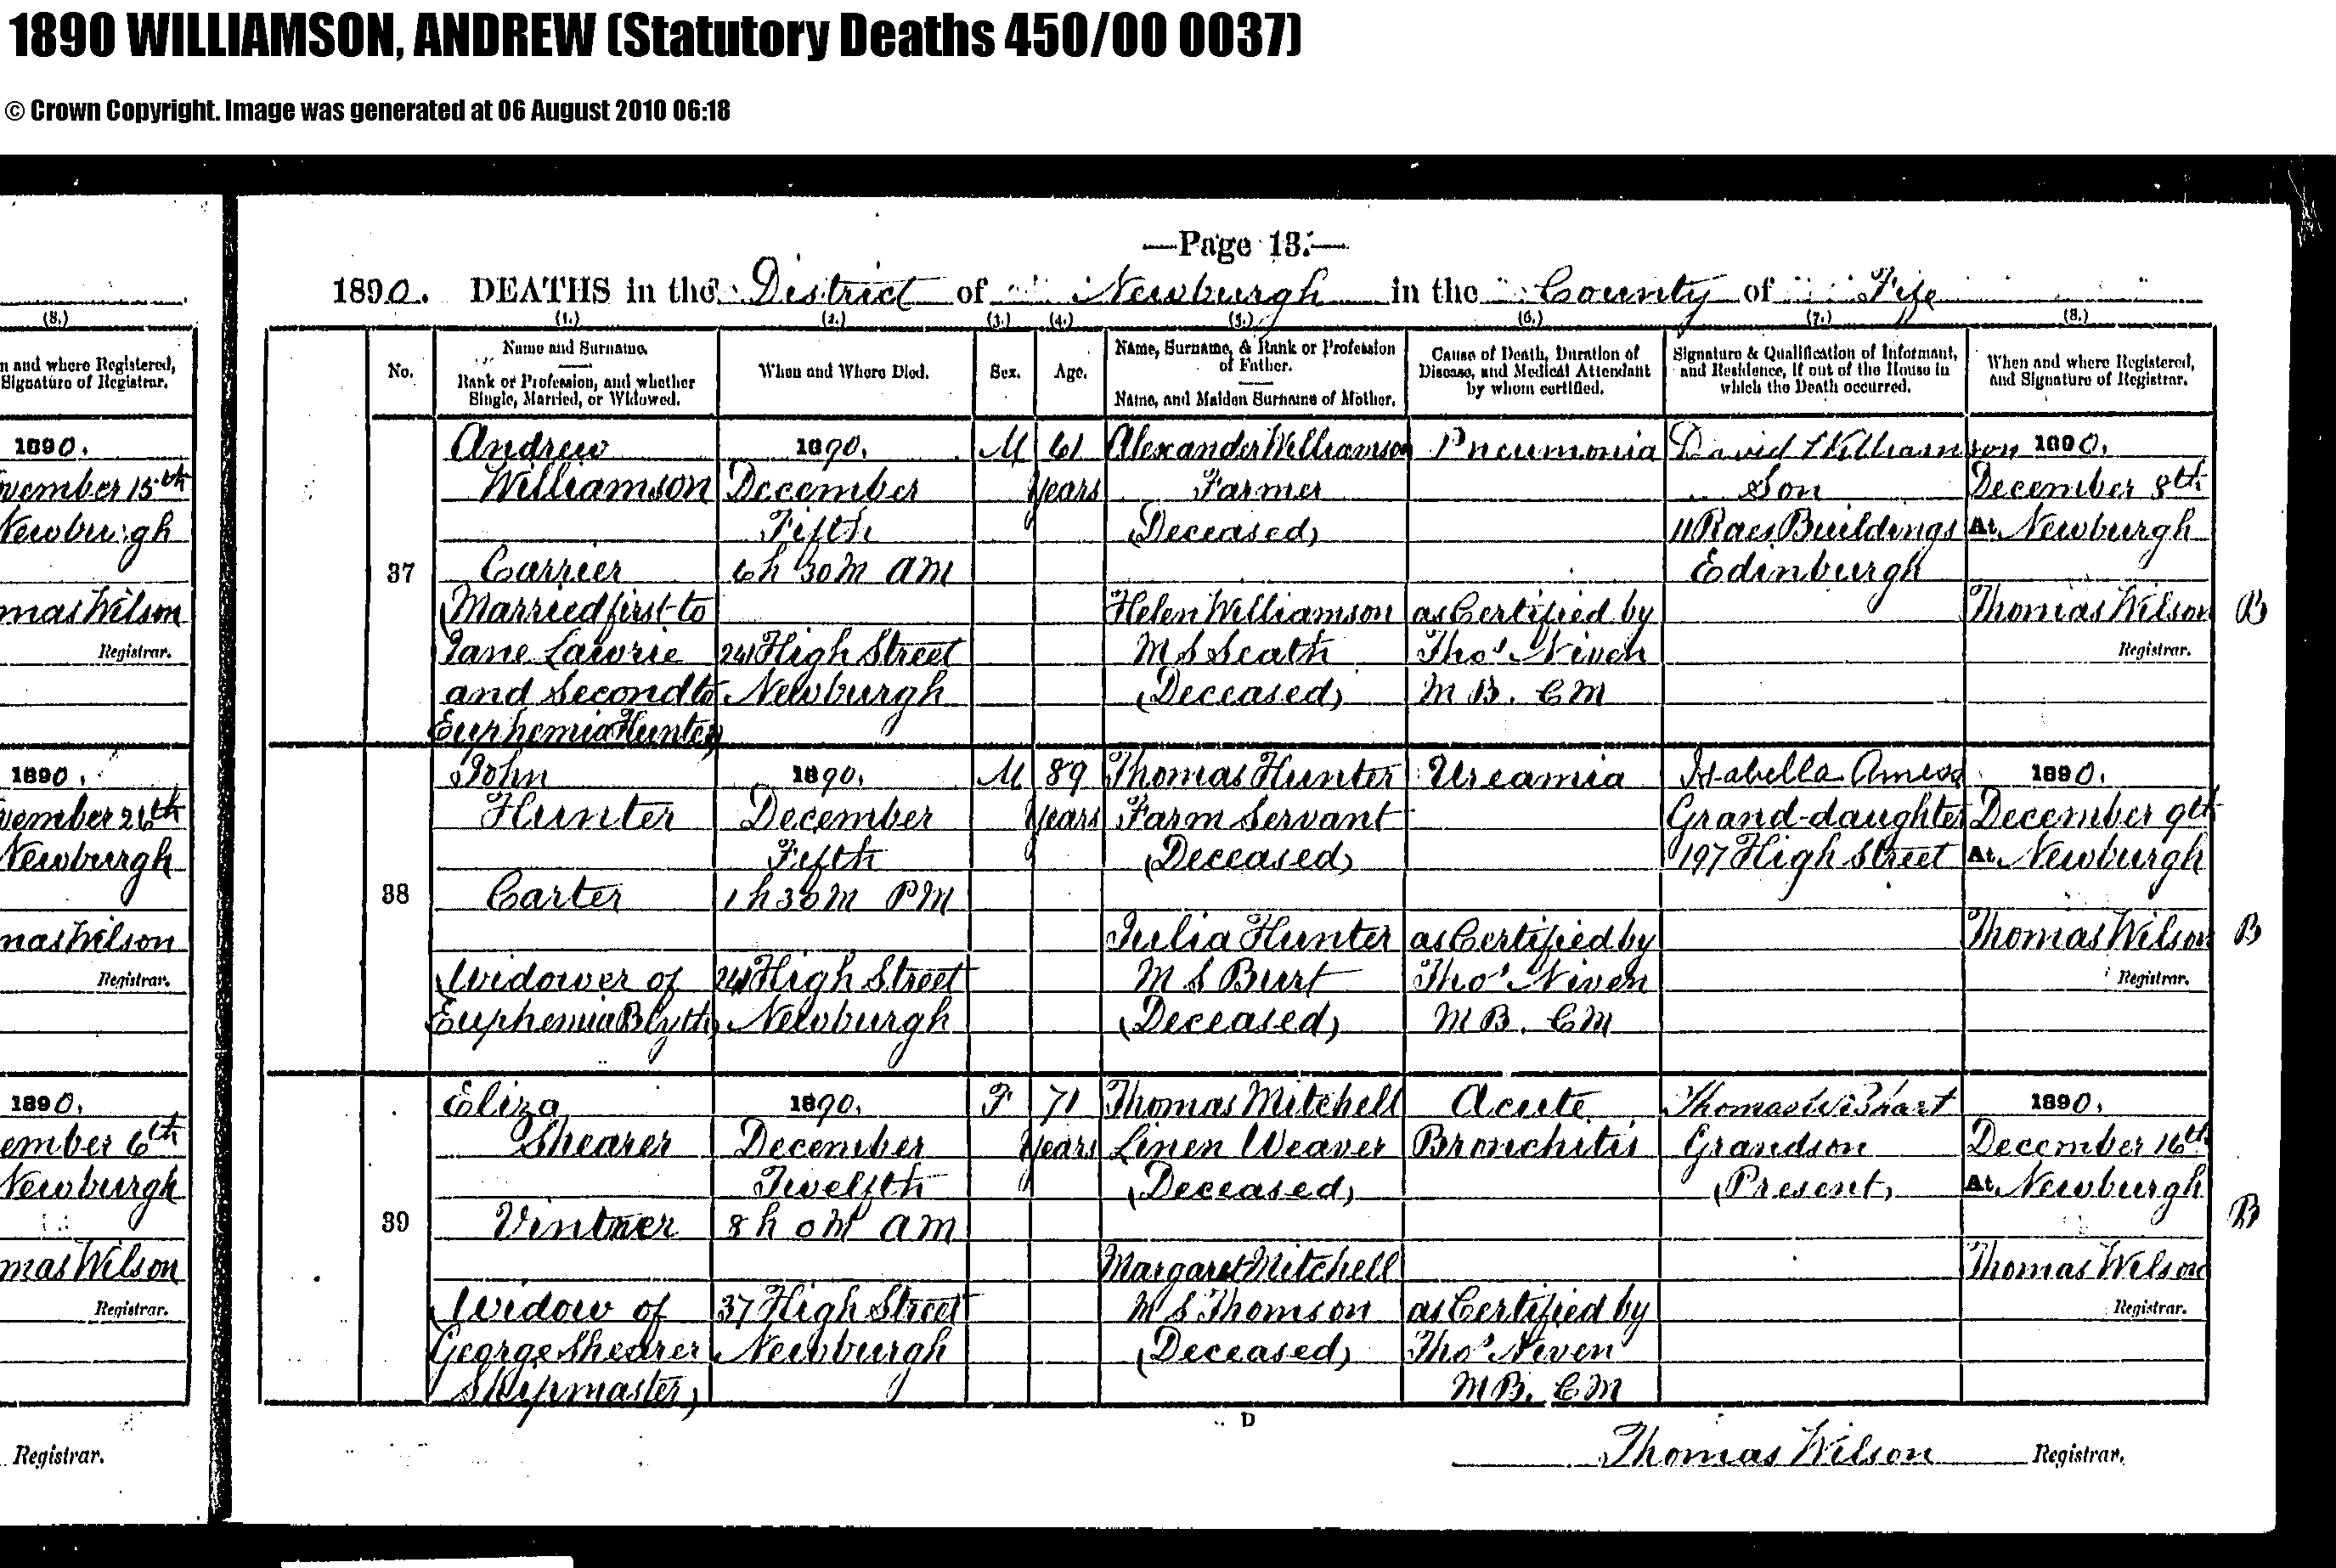 1890 WILLIAMSON, ANDREW (Statutory Deaths 450/00 0037)
© Crown Copyright. Image was generated at 06 August 2010 06:18
—Page 13.—
1890. DEATHS in the District of Newburgh in the County of Fife
(8.)
n and where Registered,
Signature of Registrar.
1890.
vember 15th
Newburgh
mas Wilson
Registrar.
1890.
vember 26th
Newburgh
mas Wilson
Registrar.
1890.
ember 6th
Newburgh
mas Wilson
Registrar.
Registrar.
(1.) (2.) (3.) (4.) (5.) (6.) (7.) (8.)
No.
Name and Surname.
Rank or Profession, and whether
Single, Married, or Widowed.
When and Where Died.
Sex.
Age.
Name, Surname, & Rank or Profession
of Father.
Name, and Maiden Surname of Mother.
Cause of Death, Duration of
Disease, and Medical Attendant
by whom certified.
Signature & Qualification of Informant,
and Residence, if out of the House in
which the Death occurred.
When and where Registered,
and Signature of Registrar.
37
Andrew
Williamson
Carrier
(Married first to
Jane Lawrie
and Second to
Euphemia Hunter)
1890.
December
Fifth
6h 30m AM
241 High Street
Newburgh
M
61
Years
Alexander Williamson
Farmer
(Deceased)
Helen Williamson
M S Seath
(Deceased)
Pneumonia
as Certified by
Thos Niven
M B. CM
David Williamson
Son
11 Raes Buildings
Edinburgh
1890.
December 8th
At Newburgh
Thomas Wilson
Registrar.
B
38
John
Hunter
Carter
(Widower of
Euphemia Blyth)
1890.
December
Fifth
1h 30m PM
241 High Street
Newburgh
M
89
Years
Thomas Hunter
Farm Servant
(Deceased)
Julia Hunter
M S Burt
(Deceased)
Ureamia
as Certified by
Thos Niven
M B. CM
Isabella
Grand-daughter
197 High Street
1890.
December 9th
At Newburgh
Thomas Wilson
Registrar.
B
39
Eliza
Shearer
Vintner
(Widow of
George Shearer
Shipmaster)
1890.
December
Twelfth
8h 0m AM
37 High Street
Newburgh
F
71
Years
Thomas Mitchell
Linen Weaver
(Deceased)
Margaret Mitchell
M S Thomson
(Deceased)
Acute
Bronchitis
as Certified by
Thos Niven
M B. CM
Thomas Wishart
Grandson
(Present)
1890.
December 16th
At Newburgh
Thomas Wilson
Registrar.
B
D
Thomas Wilson Registrar.